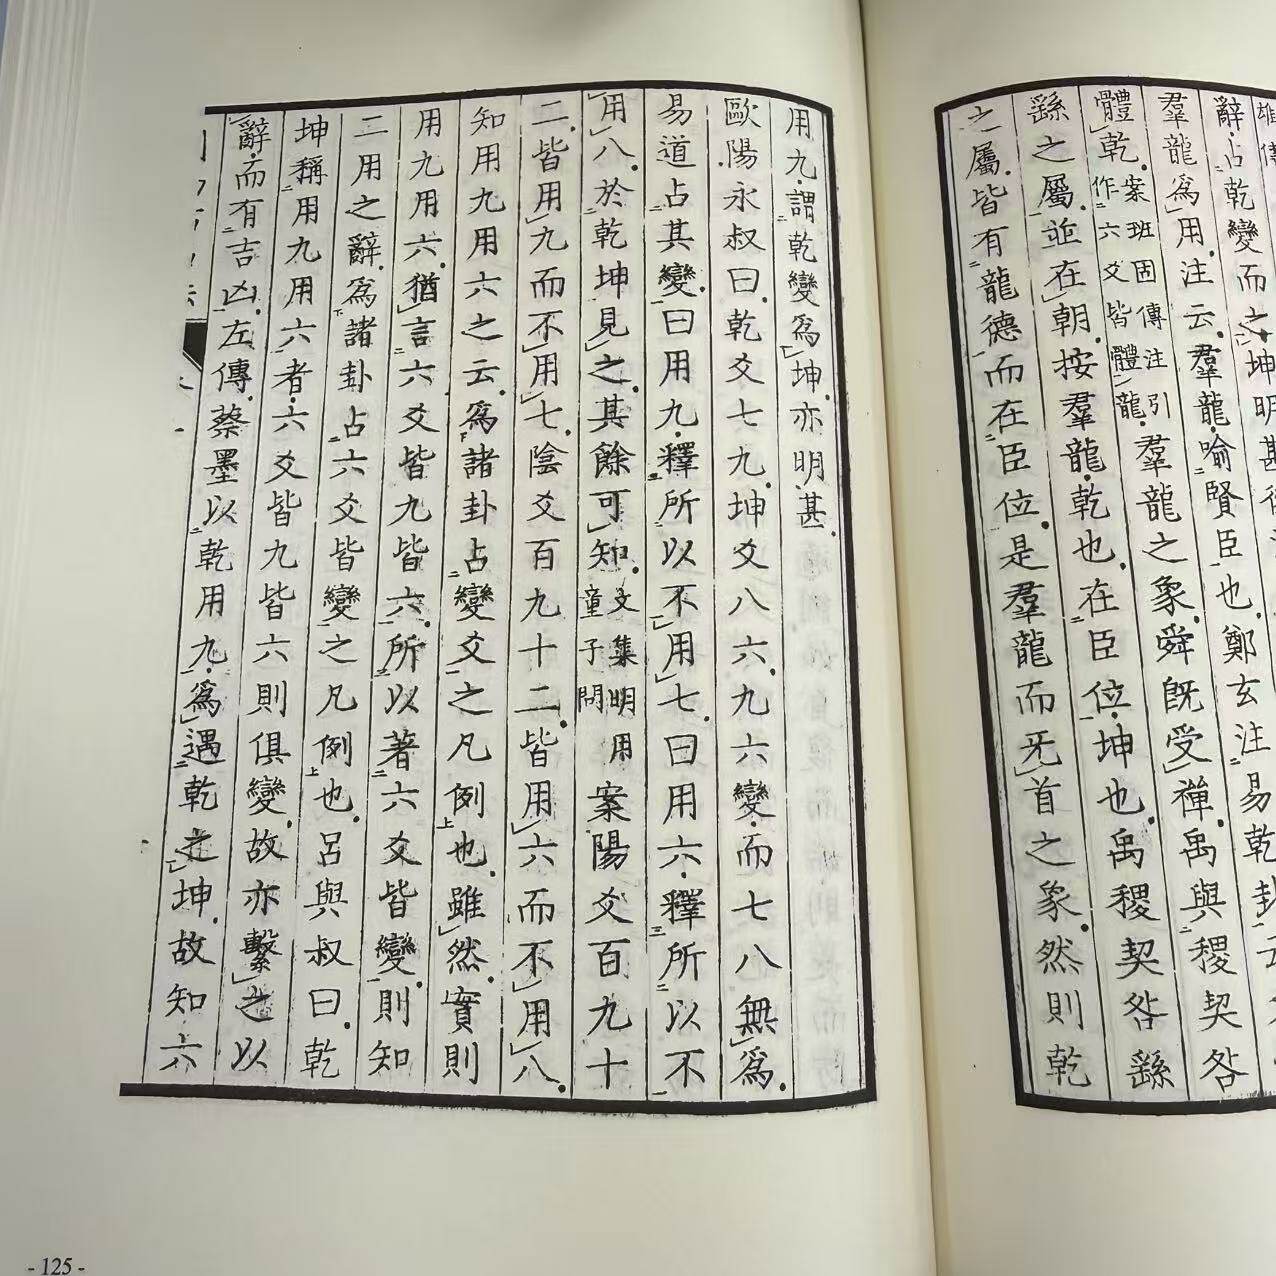 辭占乾變而之坤明甚
羣龍爲用注云羣龍喻賢臣也鄭玄注易乾卦云
體乾案班固傳注引作六爻皆體龍羣龍之象舜旣受禪禹與稷契咎
繇之屬竝在朝按羣龍乾也在臣位坤也禹稷契咎繇
之屬皆有龍德而在臣位是羣龍而旡首之象然則乾
用九謂乾變爲坤亦明甚
歐陽永叔曰乾爻七九坤爻八六九六變而七八無爲
易道占其變曰用九釋所以不用七曰用六釋所以不
用八於乾坤見之其餘可知文集明用童子問案陽爻百九十
二皆用九而不用七陰爻百九十二皆用六而不用八
知用九用六之云爲諸卦占變爻之凡例也雖然實則
用九用六猶言六爻皆九皆六所以著六爻皆變則知
二用之辭爲諸卦占六爻皆變之凡例也呂與叔曰乾
坤稱用九用六者六爻皆九皆六則俱變故亦繫之以
辭而有吉凶左傳蔡墨以乾用九爲遇乾之坤故知六
- 125 -